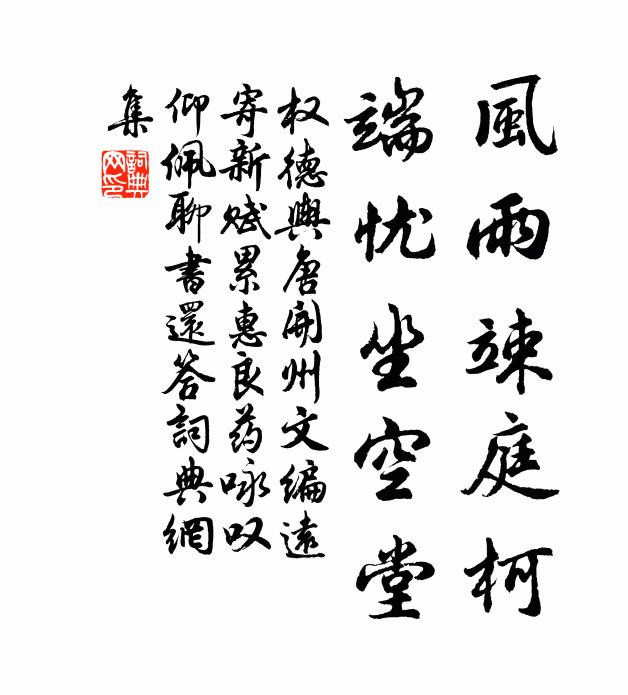 風雨竦庭柯
端忧坐空堂
权德輿唐開州文编遠
寄新赋累惠良药咏叹
仰佩聊書還答詞典網
集
詞典網印